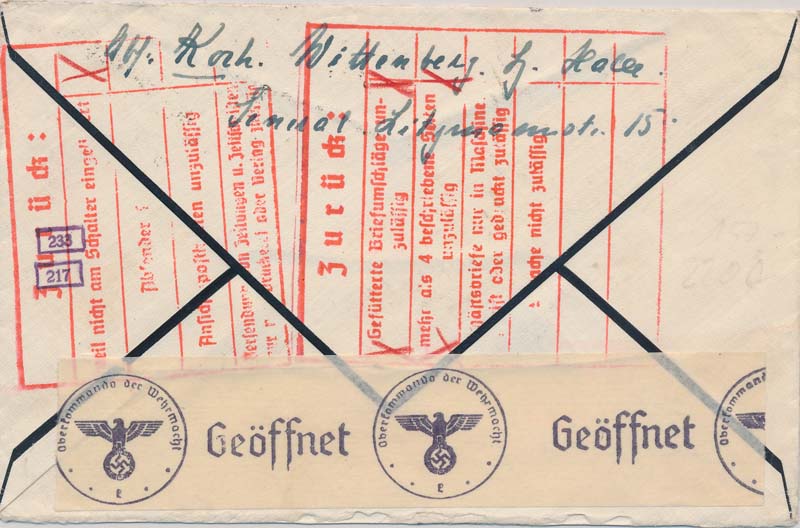 Abs. Koch. Wittenberg. Bz. Halle.
General Litzmannstr. 15.
Zurück:
eil nicht am Schalter eingeliefert
Absender
Ansichtspostkarten unzulässig
Versendung von Zeitungen u. Zeitschriften
nur Druckerei oder Verlag
233
217
Zurück:
Gefütterte Briefumschläge un-
zulässig
mehr als 4 beschriebene Seiten
unzulässig
häftsbriefe nur in Maschine
ift oder gedruckt zulässig
ache nicht zulässig
Oberkommando der Wehrmacht
Geöffnet
Oberkommando der Wehrmacht
Geöffnet
Oberkommando